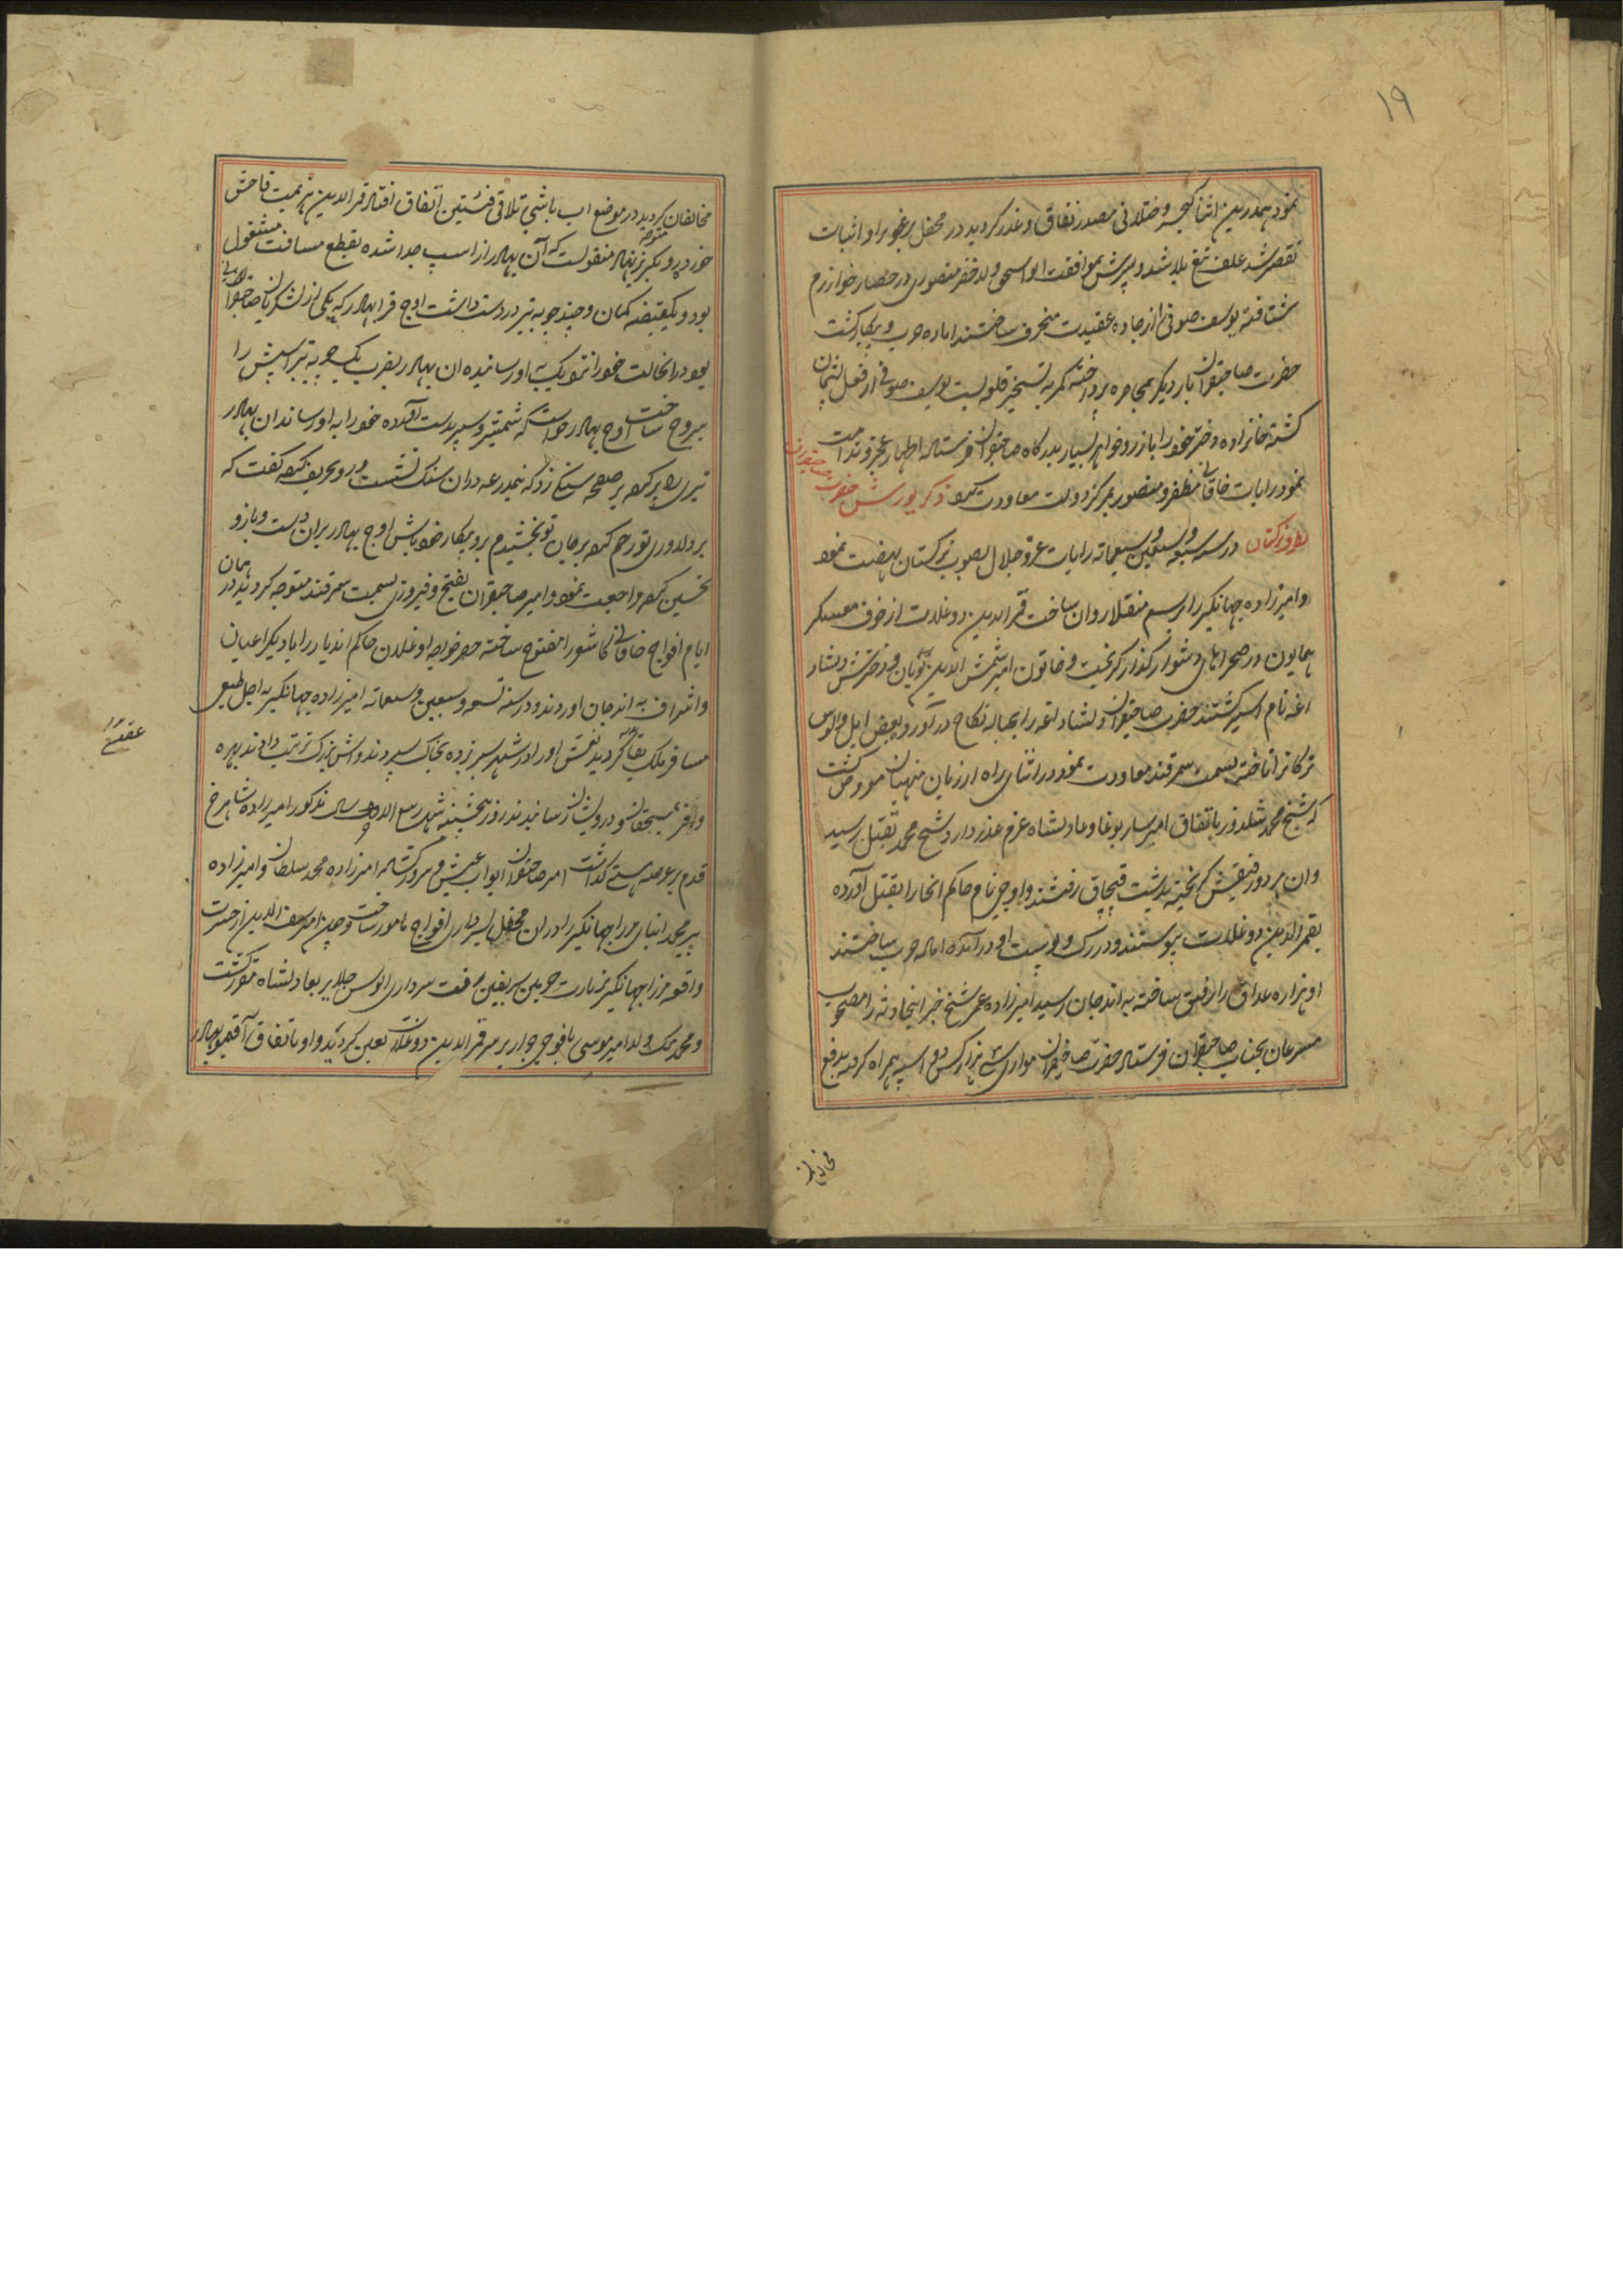 ۱۹
نمود همدرین اثنا کیخسرو ختلانی مصدر نفاق و غدر کردید در محفل یرغو براو اثبات
تقصیر شد علف تیغ بلا شد و پسرش بموافقت ابو اسحق ولد خضر منصوری در حصار خوارزم
شتافته یوسف صوفی را از جاده عقیدت منحرف ساختند اماده حرب و پیکار کشت
حضرت صاحبقران بار دیکر بمحاصره پرداخته کمر به تسخیر قلعه بست یوسف صوفی از فعل پشیمان
کشته خانزاده دختر خود را با زر و جواهر بسیار بدرکاه صاحبقران فرستاده اظهار عجز و ندامت
نمود رایات خاقانی مظفر و منصور بمرکز دولت معاودت کرد ذکر یورش حضرت صاحبقران
بطرف ترکستان در سنه سبع و سبعین و سبعماته رایات عز و جلال بصوب ترکستان نهضت نمود
و امیرزاده جهانکیر را برسم منقلا روان ساخت قمرالدین دوغلات از خوف معسکر
همایون در صحراهای دشوار کذار کریخت و خاتون امیر شمس الدین تویان و دخترش دلشاد
اغه نام اسیر کشتند حضرت صاحبقران دلشاد اغه را بحباله نکاح در آورد و بعض ایل و الوس
ترکانرا تاخته بسمت سمرقند معاودت نمود در اثنای راه از زبان منهیان معروض کشت
که شیخ محمد سلدوز باتفاق امیر سار بوغا و عادلشاه عزم غدر دارد شیخ محمد بقتل رسید
وان هر دو رفیقش کریخته بدشت قبچاق رفتند و اوجی نام حاکم انجا را بقتل آورده
بقمرالدین دوغلات پیوستند و در رک و پوست او در آمده اماده حرب ساختند
او هزاره عداق را رفیق ساخته به اندجان رسید امیرزاده عمر شیخ خبر اینحادثه را مصحوب
مسرعان بجناب صاحبقران فرستاد حضرت صاحبقران موازی سی هزار کس دو اسپه همراه کرده بدفع
مخالفان
مخالفان کردید در موضع اب باشی تلاقی فئتین اتفاق افتاد قمرالدین هزیمت فاحش
خورد و رو بکریز نهاد منقولست که آن بهادر از اسپ جدا شده بقطع مسافت مشغول
بود و یکقبضه کمان و چند چوبه تیر در دست داشت اوج قرا بهادر که یکی از لشکریان صاحبقرانی
بود در انحالت خود را نزدیک به او رسانیده ان بهادر بضرب یک چوبه تیر اسپش را
مجروح ساخت اوج بهادر خواست که شمشیر و سپر بدست آورده خود را به او رساند ان بهادر
تیری سر کرده بر صفحه سنکی زد که نیمذرعه در ان سنک نشست و رو بحریف کرده کفت که
بر دلاوری تو رحم کرده برجان تو بخشیدم برو بکار خود باش اوج بهادر بران دست و بازو
تحسین کرده مراجعت نمود و امیر صاحبقران بفتح و فیروزی بسمت سمرقند متوجه کردید در همان
ایام افواج خاقانی کاشور را مفتوح ساخته خضر خواجه اوغلان حاکم اندیار را با دیکر اعیان
و اشراف به اندجان اوردند و در سنه تسع و سبعین و سبعماته امیرزاده جهانکیر به اجل طبیعی
مسافر ملک بقا کردید نعش او را در شهر سبز برده بخاک سپردند و اش بزرک ترتیب دادند بهره
وافر بمستحقان و درویشان رسانیدند روز پنجشنبه شهر ربیع الاخر سال مذکور امیرزاده شاهرخ
قدم بر عرصه هستی کذاشت امیر صاحبقران ابواب عیش و سرور کشاده امیرزاده محمد سلطان و امیرزاده
پیر محمد ابنای میرزا جهانکیر را دران محفل بسرداری افواج مامور ساخت و چون امیر سیف الدین از حسرت
واقعه میرزا جهانکیر بزیارت حرمین شریفین رفت سرداری الوس جلایر بعادلشاه مقرر کشت
و محمد بیک ولد امیر موسی با فوجی جرار بر سر قمرالدین دوغلات تعین کردید و او باتفاق آقتیمور بهادر